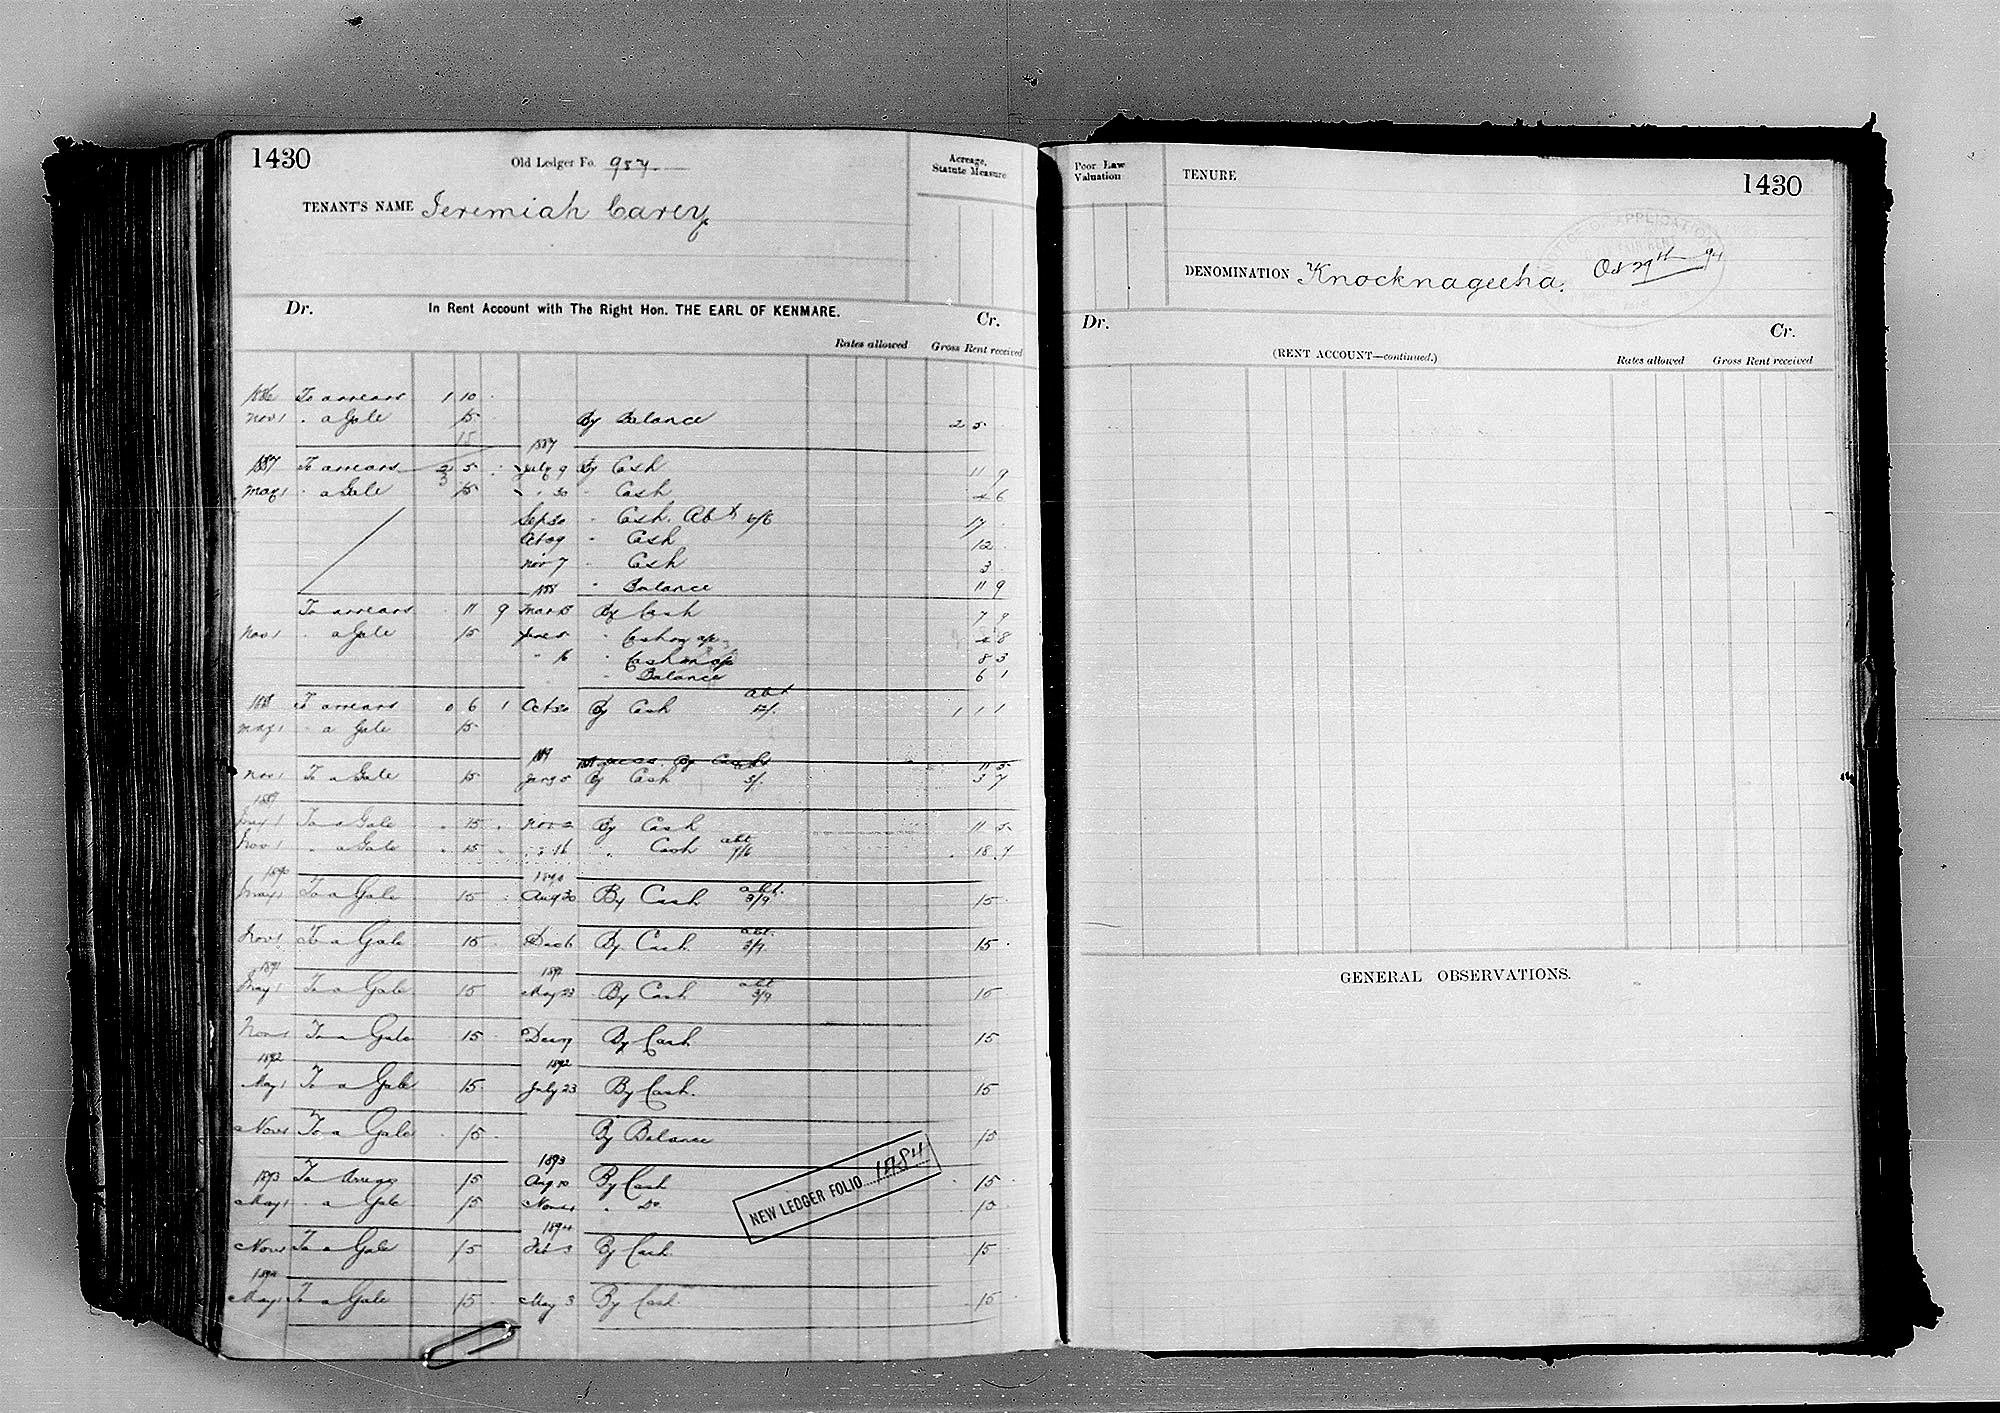 1430
Old Ledger Fo. 987
Acreage, Statute Measure
TENANT'S NAME Jeremiah Carey
Dr. In Rent Account with The Right Hon. THE EARL OF KENMARE. Cr.
Rates allowed Gross Rent received
1886 To arrears 1 10
Nov 1 " a Gale 15 By Balance 2 5
15
1887
1887 To arrears 5 July 9 By Cash 11 9
May 1 " a Gale 15 " 30 " Cash 4 6
Sep 30 " Cash. Abt 6/6 17
Oct 29 " Cash 12
Nov 7 " Cash 3
1888 " Balance 11 9
To arrears 11 9 Mar 15 By Cash 7 9
Nov 1 " a Gale 15 June 5 " Cash on a/c 4 8
" 16 " Cash on a/c 8 3
" Balance 6 1
abt
1888 To arrears 0 6 1 Oct 30 By Cash 1 1 1
May 1 " a Gale 15
1889 By Cash 11 5
Nov 1 To a Gale 15 Jany 5 By Cash 3/. 3 7
1889
May 1 To a Gale 15 Nov 2 By Cash 11 5
Nov 1 " a Gale 15 " 16 " Cash abt 7/6 18 7
1890 1890
May 1 To a Gale 15 Aug 30 By Cash abt. 3/9 15
Nov 1 To a Gale 15 Dec 6 By Cash abt. 3/9 15
1891 1891
May 1 To a Gale 15 May 23 By Cash abt 3/9 15
Nov 1 To a Gale 15 Dec 19 By Cash 15
1892 1892
May 1 To a Gale 15 July 23 By Cash. 15
Nov 1 To a Gale 15 By Balance 15
1893
1893 To Arrears 15 Aug 10 By Cash 15
May 1 " a Gale 15 Nov " Do 15
NEW LEDGER FOLIO 1084
1894
Nov 1 To a Gale 15 Feb 3 By Cash 15
1894
May 1 To a Gale 15 May 3 By Cash 15
Poor Law Valuation
TENURE
1430
NOTICE OF APPLICATION
FAIR RENT
DENOMINATION Knocknageeha. Oct 29th 94
Dr. Cr.
(RENT ACCOUNT—continued.) Rates allowed Gross Rent received
GENERAL OBSERVATIONS.